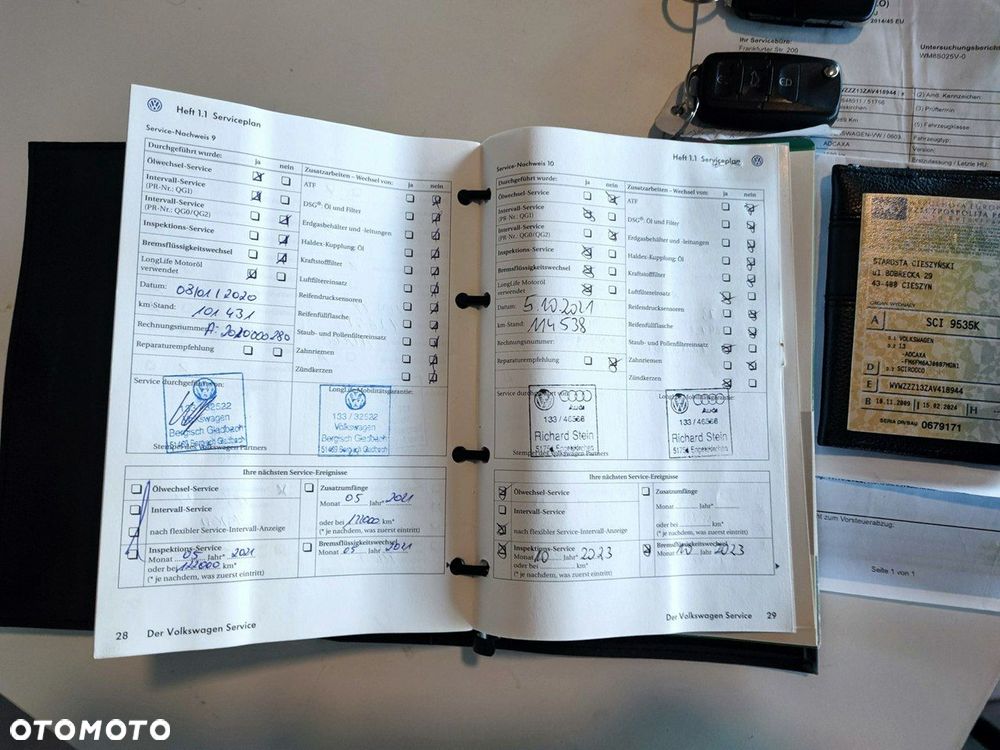 Heft 1.1 Serviceplan
Service-Nachweis 9
Durchgeführt wurde: ja nein
Ölwechsel-Service
Intervall-Service
(PR-Nr.: QG1)
Intervall-Service
(PR-Nr.: QG0/QG2)
Inspektions-Service
Bremsflüssigkeitswechsel
LongLife Motoröl
verwendet
Datum: 03/01/2020
km-Stand: 101 431
Rechnungsnummer: A: 2020000280
Reparaturempfehlung
Zusatzarbeiten – Wechsel von: ja nein
ATF
DSG®: Öl und Filter
Erdgasbehälter und -leitungen
Haldex-Kupplung: Öl
Kraftstofffilter
Luftfiltereinsatz
Reifendrucksensoren
Reifenfüllflasche
Staub- und Pollenfiltereinsatz
Zahnriemen
Zündkerzen
Service durchgeführt von:
LongLife-Mobilitätsgarantie:
133/32522
Volkswagen
Bergisch Gladbach
51469 Bergisch Gladbach
133/32522
Volkswagen
Bergisch Gladbach
51469 Bergisch Gladbach
Stempel des Volkswagen Partners
Ihre nächsten Service-Ereignisse
Ölwechsel-Service
Intervall-Service
nach flexibler Service-Intervall-Anzeige
Inspektions-Service
Monat 05 Jahr* 2021
oder bei 122000 km*
(* je nachdem, was zuerst eintritt)
Zusatzumfänge
Monat 05 Jahr* 2021
oder bei 122000 km*
(* je nachdem, was zuerst eintritt)
Bremsflüssigkeitswechsel
Monat 05 Jahr 2021
28 Der Volkswagen Service
Heft 1.1 Serviceplan
Service-Nachweis 10
Durchgeführt wurde: ja nein
Ölwechsel-Service
Intervall-Service
(PR-Nr.: QG1)
Intervall-Service
(PR-Nr.: QG0/QG2)
Inspektions-Service
Bremsflüssigkeitswechsel
LongLife Motoröl
verwendet
Datum: 5.10.2021
km-Stand: 114 538
Rechnungsnummer:
Reparaturempfehlung
Zusatzarbeiten – Wechsel von: ja nein
ATF
DSG®: Öl und Filter
Erdgasbehälter und -leitungen
Haldex-Kupplung: Öl
Kraftstofffilter
Luftfiltereinsatz
Reifendrucksensoren
Reifenfüllflasche
Staub- und Pollenfiltereinsatz
Zahnriemen
Zündkerzen
Service durchgeführt von:
LongLife-Mobilitätsgarantie:
Audi
133 / 46568
Richard Stein
51766 Engelskirchen
Audi
133 / 46568
Richard Stein
51766 Engelskirchen
Stempel des Volkswagen Partners
Ihre nächsten Service-Ereignisse
Ölwechsel-Service
Intervall-Service
nach flexibler Service-Intervall-Anzeige
Inspektions-Service
Monat 10 Jahr* 2023
oder bei km*
(* je nachdem, was zuerst eintritt)
Zusatzumfänge
Monat Jahr*
oder bei km*
(* je nachdem, was zuerst eintritt)
Bremsflüssigkeitswechsel
Monat 10 Jahr 2023
Der Volkswagen Service 29
2014/45 EU
Ihr Servicebüro:
Frankfurter Str. 200
Untersuchungsbericht
WM6S025V-0
WVWZZZ13ZAV418944
(2) Amtl. Kennzeichen:
(3) Prüftermin
(5) Fahrzeugklasse
VOLKSWAGEN-VW / 0603
Fahrzeugtyp:
ADCAXA
Version:
Erstzulassung / Letzte HU:
STAROSTA CIESZYŃSKI
ul. BOBRECKA 29
43-400 CIESZYN
ORGAN WYDAJĄCY
A SCI 9535K
D.1 VOLKSWAGEN
D.2 13
-ADCAXA
D D.3 SCIROCCO
E WVWZZZ13ZAV418944
B 10.11.2009 I 15.02.2024 H
SERIA DR/BAU 0679171
Seite 1 von 1
OTOMOTO